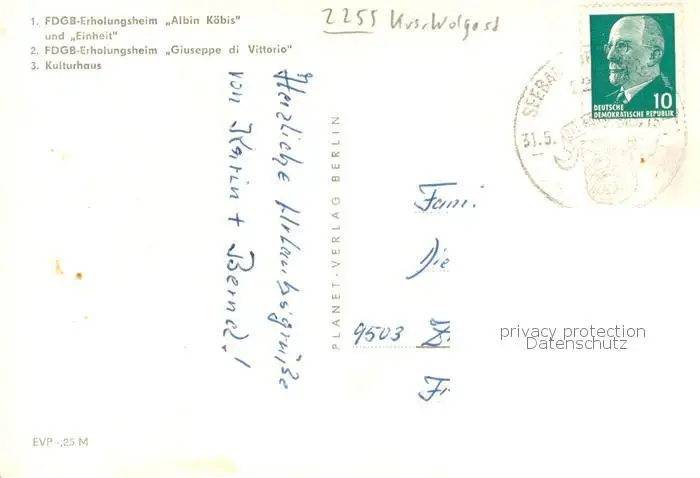 1. FDGB-Erholungsheim „Albin Köbis"
und „Einheit"
2. FDGB-Erholungsheim „Giuseppe di Vittorio"
3. Kulturhaus
2255 Krs. Wolgast
SEEBAD
31.5.
10
DEUTSCHE
DEMOKRATISCHE REPUBLIK
Herzliche Urlaubsgrüße
von Karin + Bernd!
PLANET-VERLAG BERLIN
Fami
Die
9503
privacy protection
Datenschutz
EVP -,25 M